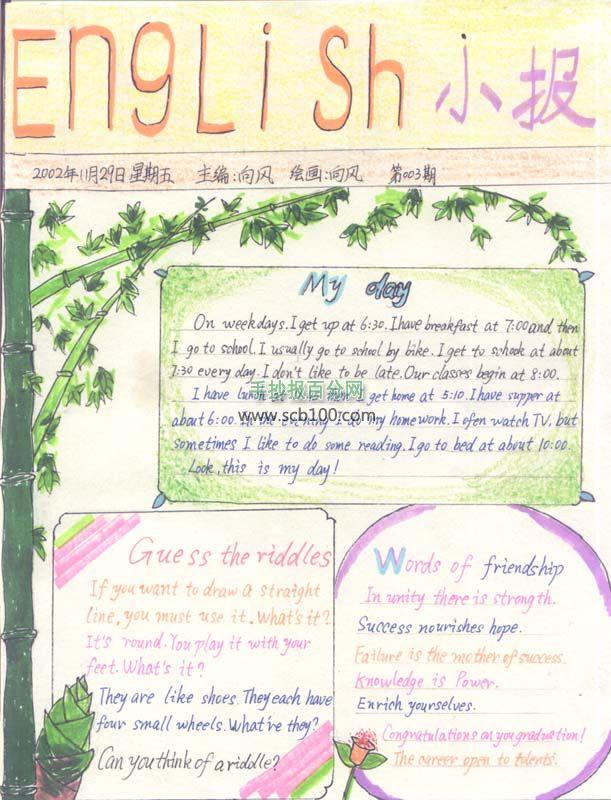 EngLiSh 小报
2002年11月29日 星期五 主编:向风 绘画:向风 第003期
My day
On weekdays. I get up at 6:30. I have breakfast at 7:00 and then
I go to school. I usually go to school by bike. I get to schook at about
7:30 every day. I don't like to be late. Our classes begin at 8:00.
手抄报百分网
I have lunch at I get home at 5:10. I have supper at
www.scb100.com
about 6:00. In the evening I do my homework. I ofen watch TV, but
sometimes I like to do some reading. I go to bed at about 10:00.
Look, this is my day!
Guess the riddles
If you want to draw a straight
line, you must use it. What's it?
It's round. You play it with your
feet. What's it?
They are like shoes. They each have
four small wheels. What're they?
Can you think of a riddle?
Words of friendship
In unity there is strength.
Success nourishes hope.
Failure is the mother of success.
Knowledge is Power.
Enrich yourselves.
Congratulations on you graduation!
The career open to talents.